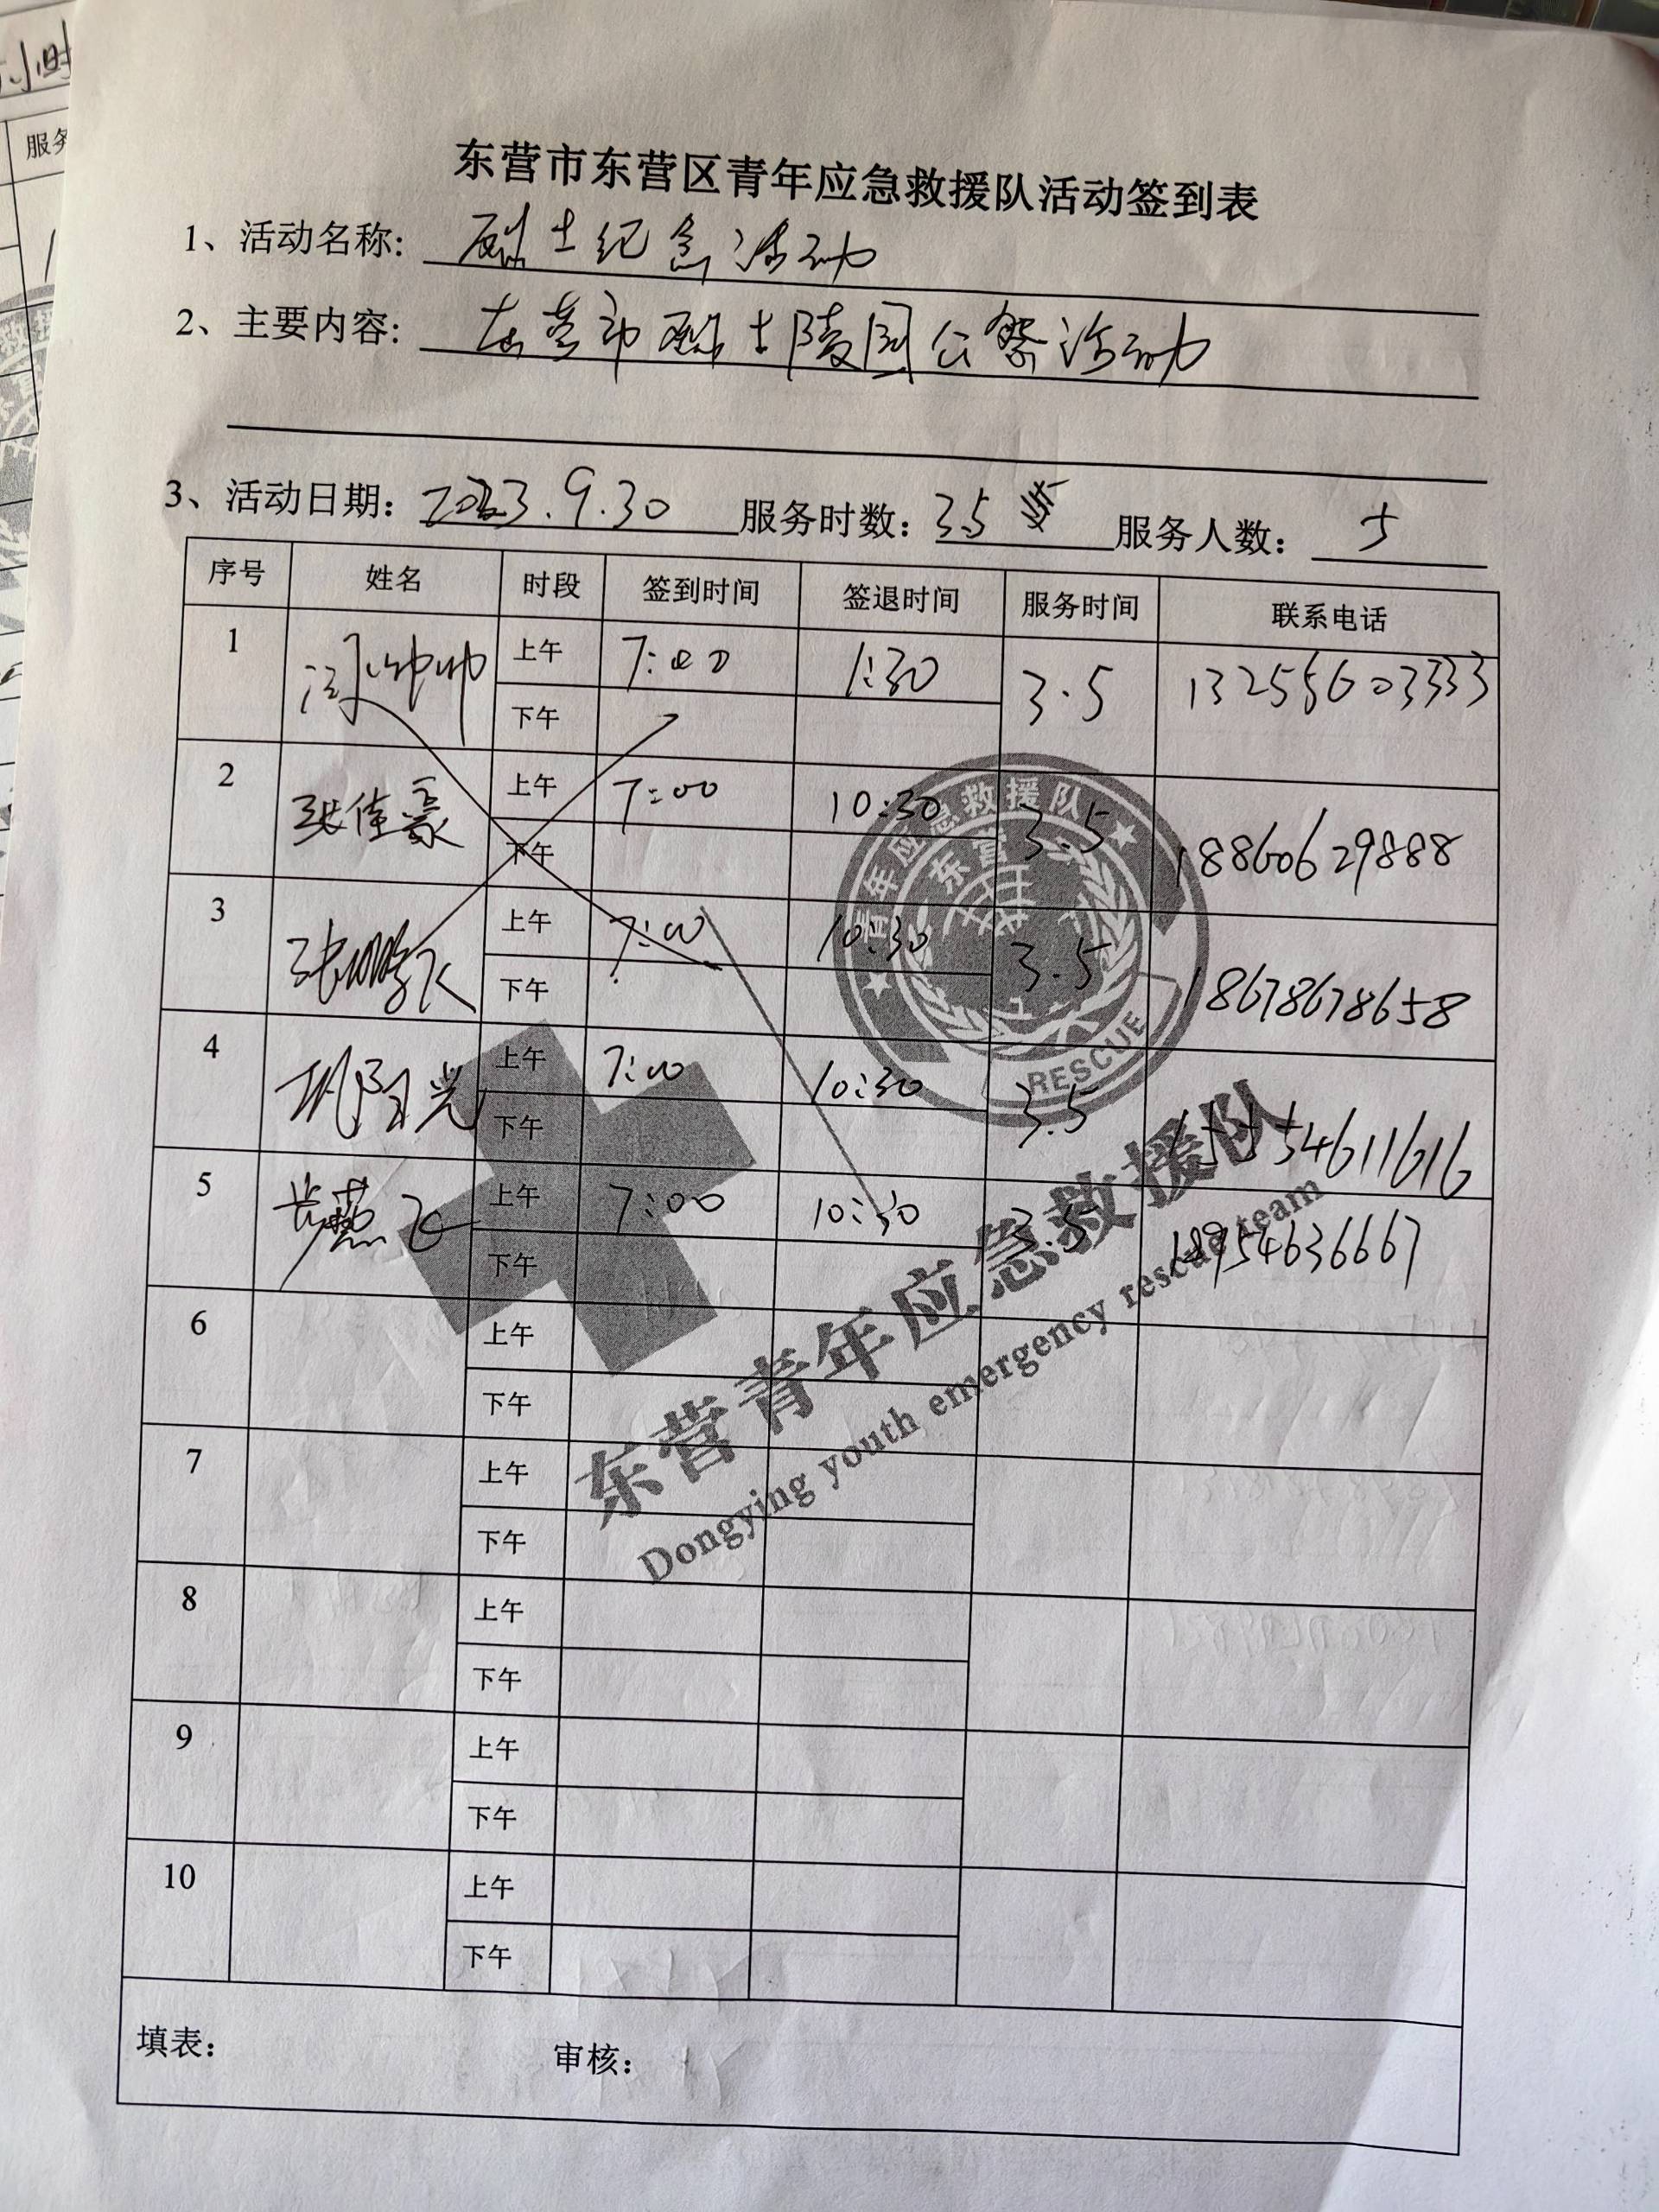 小时
服务
东营市东营区青年应急救援队活动签到表
1、活动名称: 烈士纪念活动
2、主要内容: 东营市烈士陵园公祭活动
3、活动日期: 2023.9.30 服务时数: 3.5 服务人数: 5
序号 姓名 时段 签到时间 签退时间 服务时间 联系电话
1 闫帅帅 上午 7:00 1:30 3.5 13255603333
下午
2 张佳豪 上午 7:00 10:30 3.5 18860629888
下午
3 张鹏飞 上午 7:00 10:30 3.5 18678678658
下午
4 阳光 上午 7:00 10:30 3.5 15554611616
下午
5 燕飞 上午 7:00 10:30 3.5 18954636667
下午
6 上午
下午
7 上午
下午
8 上午
下午
9 上午
下午
10 上午
下午
填表: 审核:
青年应急救援队
东营
RESCUE
东营青年应急救援队
Dongying youth emergency rescue team